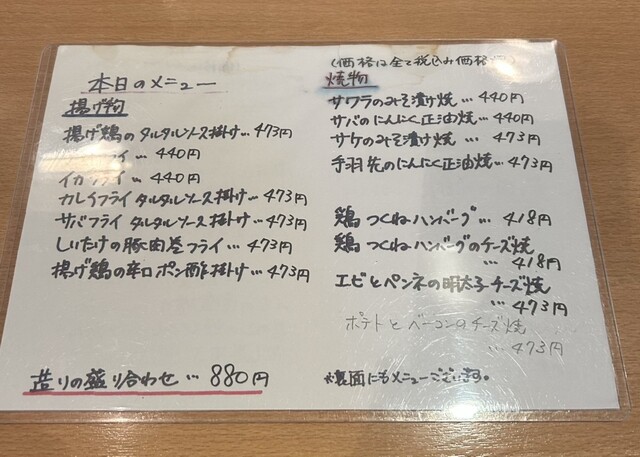 本日のメニュー
揚げ物
揚げ鶏のタルタルソース掛け…473円
フライ…440円
イカフライ…440円
カレイフライタルタルソース掛け…473円
サバフライタルタルソース掛け…473円
しいたけの豚肉巻フライ…473円
揚げ鶏の辛口ポン酢掛け…473円
造りの盛り合わせ…880円
(価格は全て税込み価格円)
焼物
サワラのみそ漬け焼…440円
サバのにんにく正油焼…440円
サケのみそ漬け焼…473円
手羽先のにんにく正油焼…473円
鶏つくねハンバーグ…418円
鶏つくねハンバーグのチーズ焼
…418円
エビとペンネの明太子チーズ焼
…473円
ポテトとベーコンのチーズ焼
…473円
※裏面にもメニューございます。